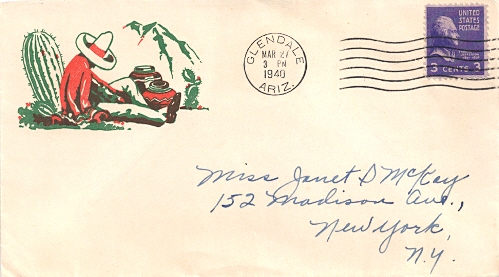 GLENDALE
MAR 27
3 PM
1940
ARIZ.
UNITED
STATES
POSTAGE
3 CENTS 3
Miss Janet D McKay
152 Madison Ave.,
New York,
N.Y.